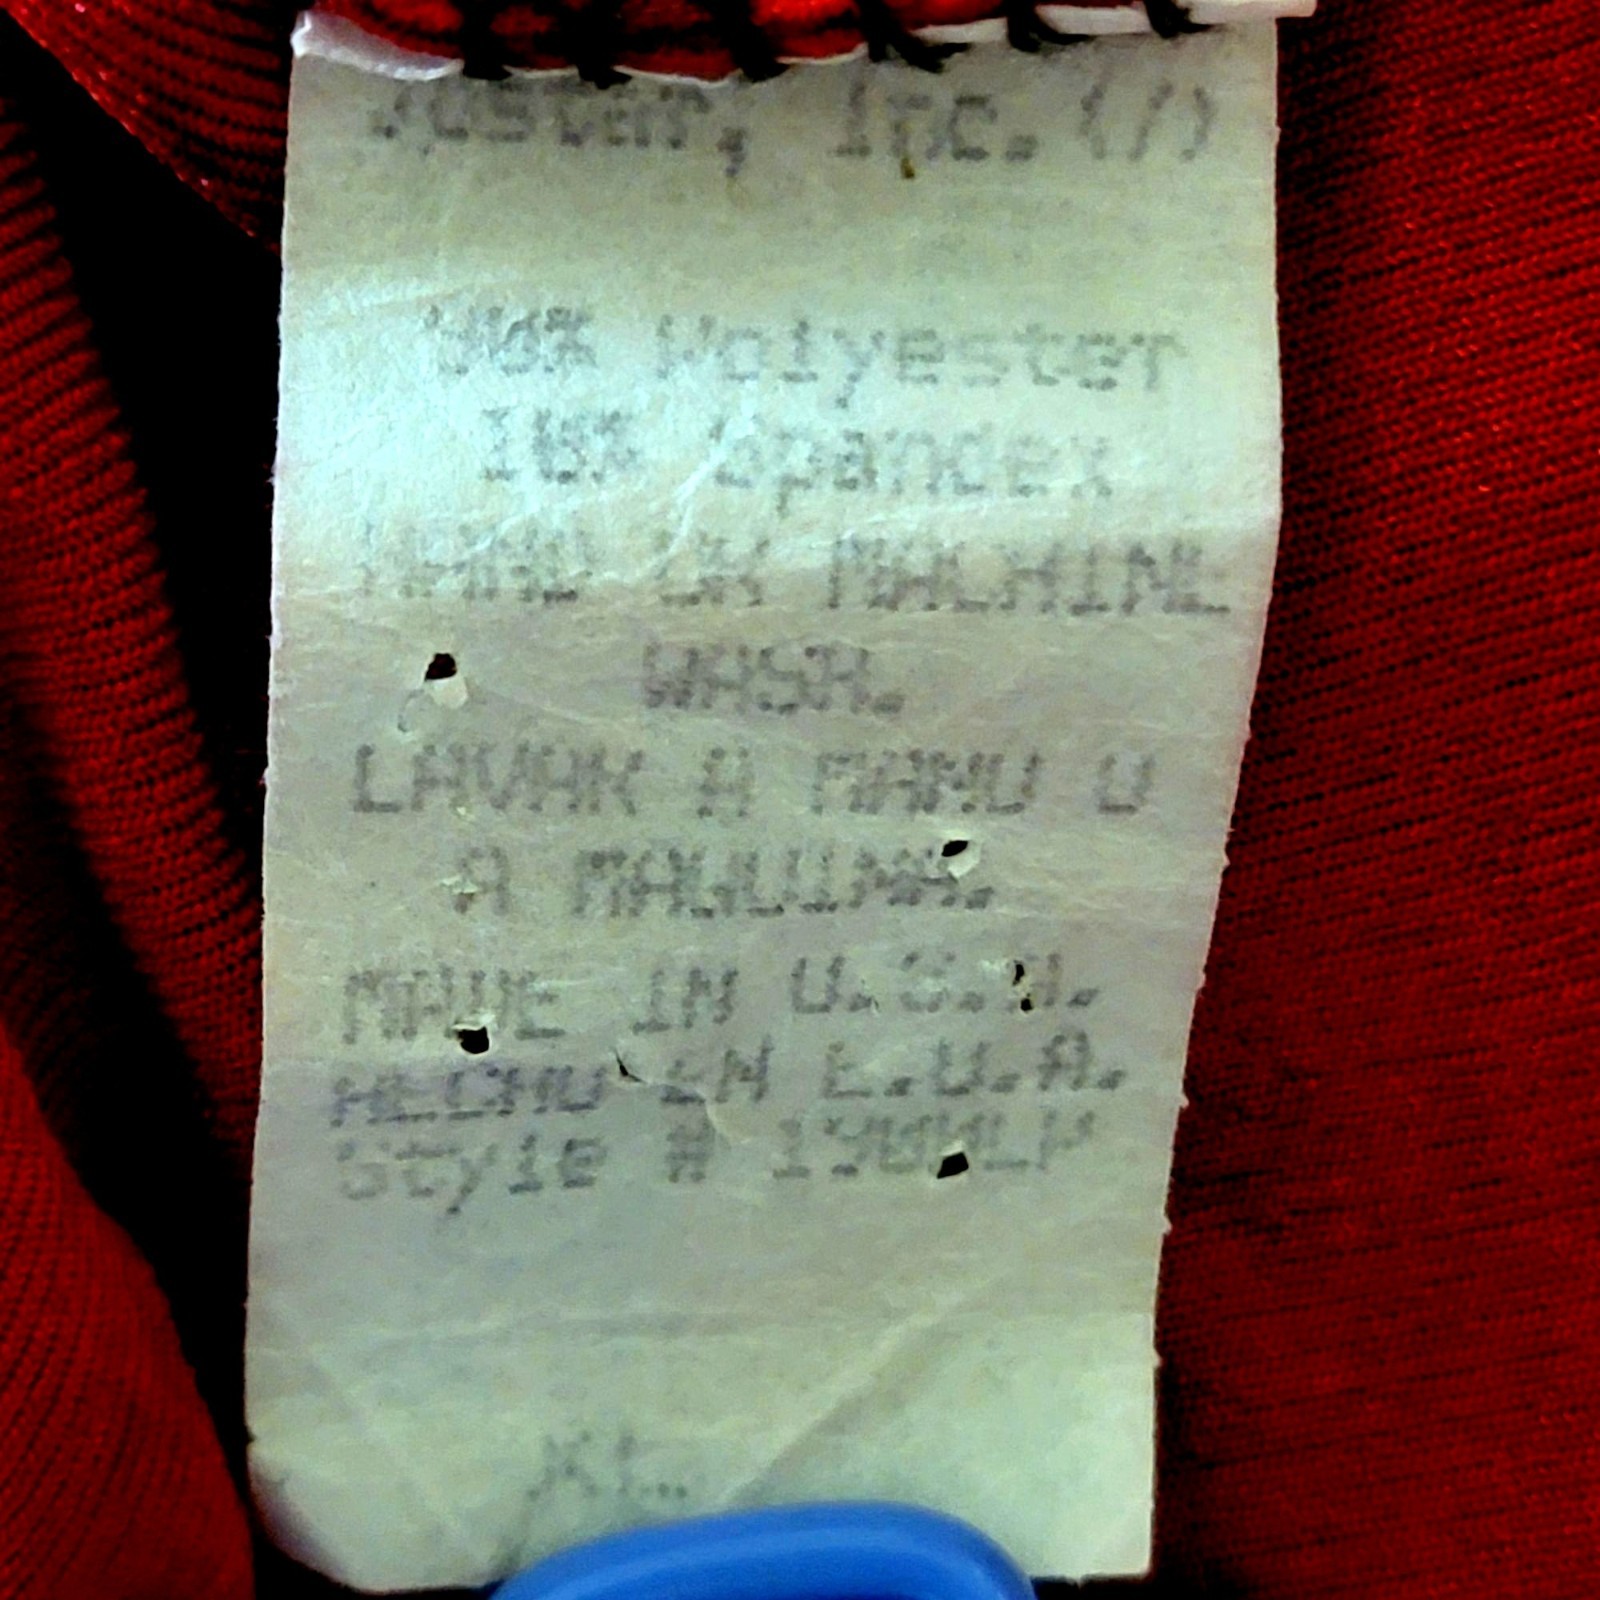 Inc. (7)
90% Polyester
10% Spandex
HAND OR MACHINE
WASH.
LAVAR A MANO O
A MAQUINA.
MADE IN U.S.A.
HECHO EN E.U.A.
Style #
XL